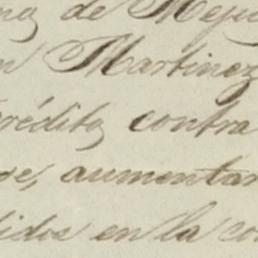 de Meju
n Martinez
crédito contra
se, aumentan
didos en la co